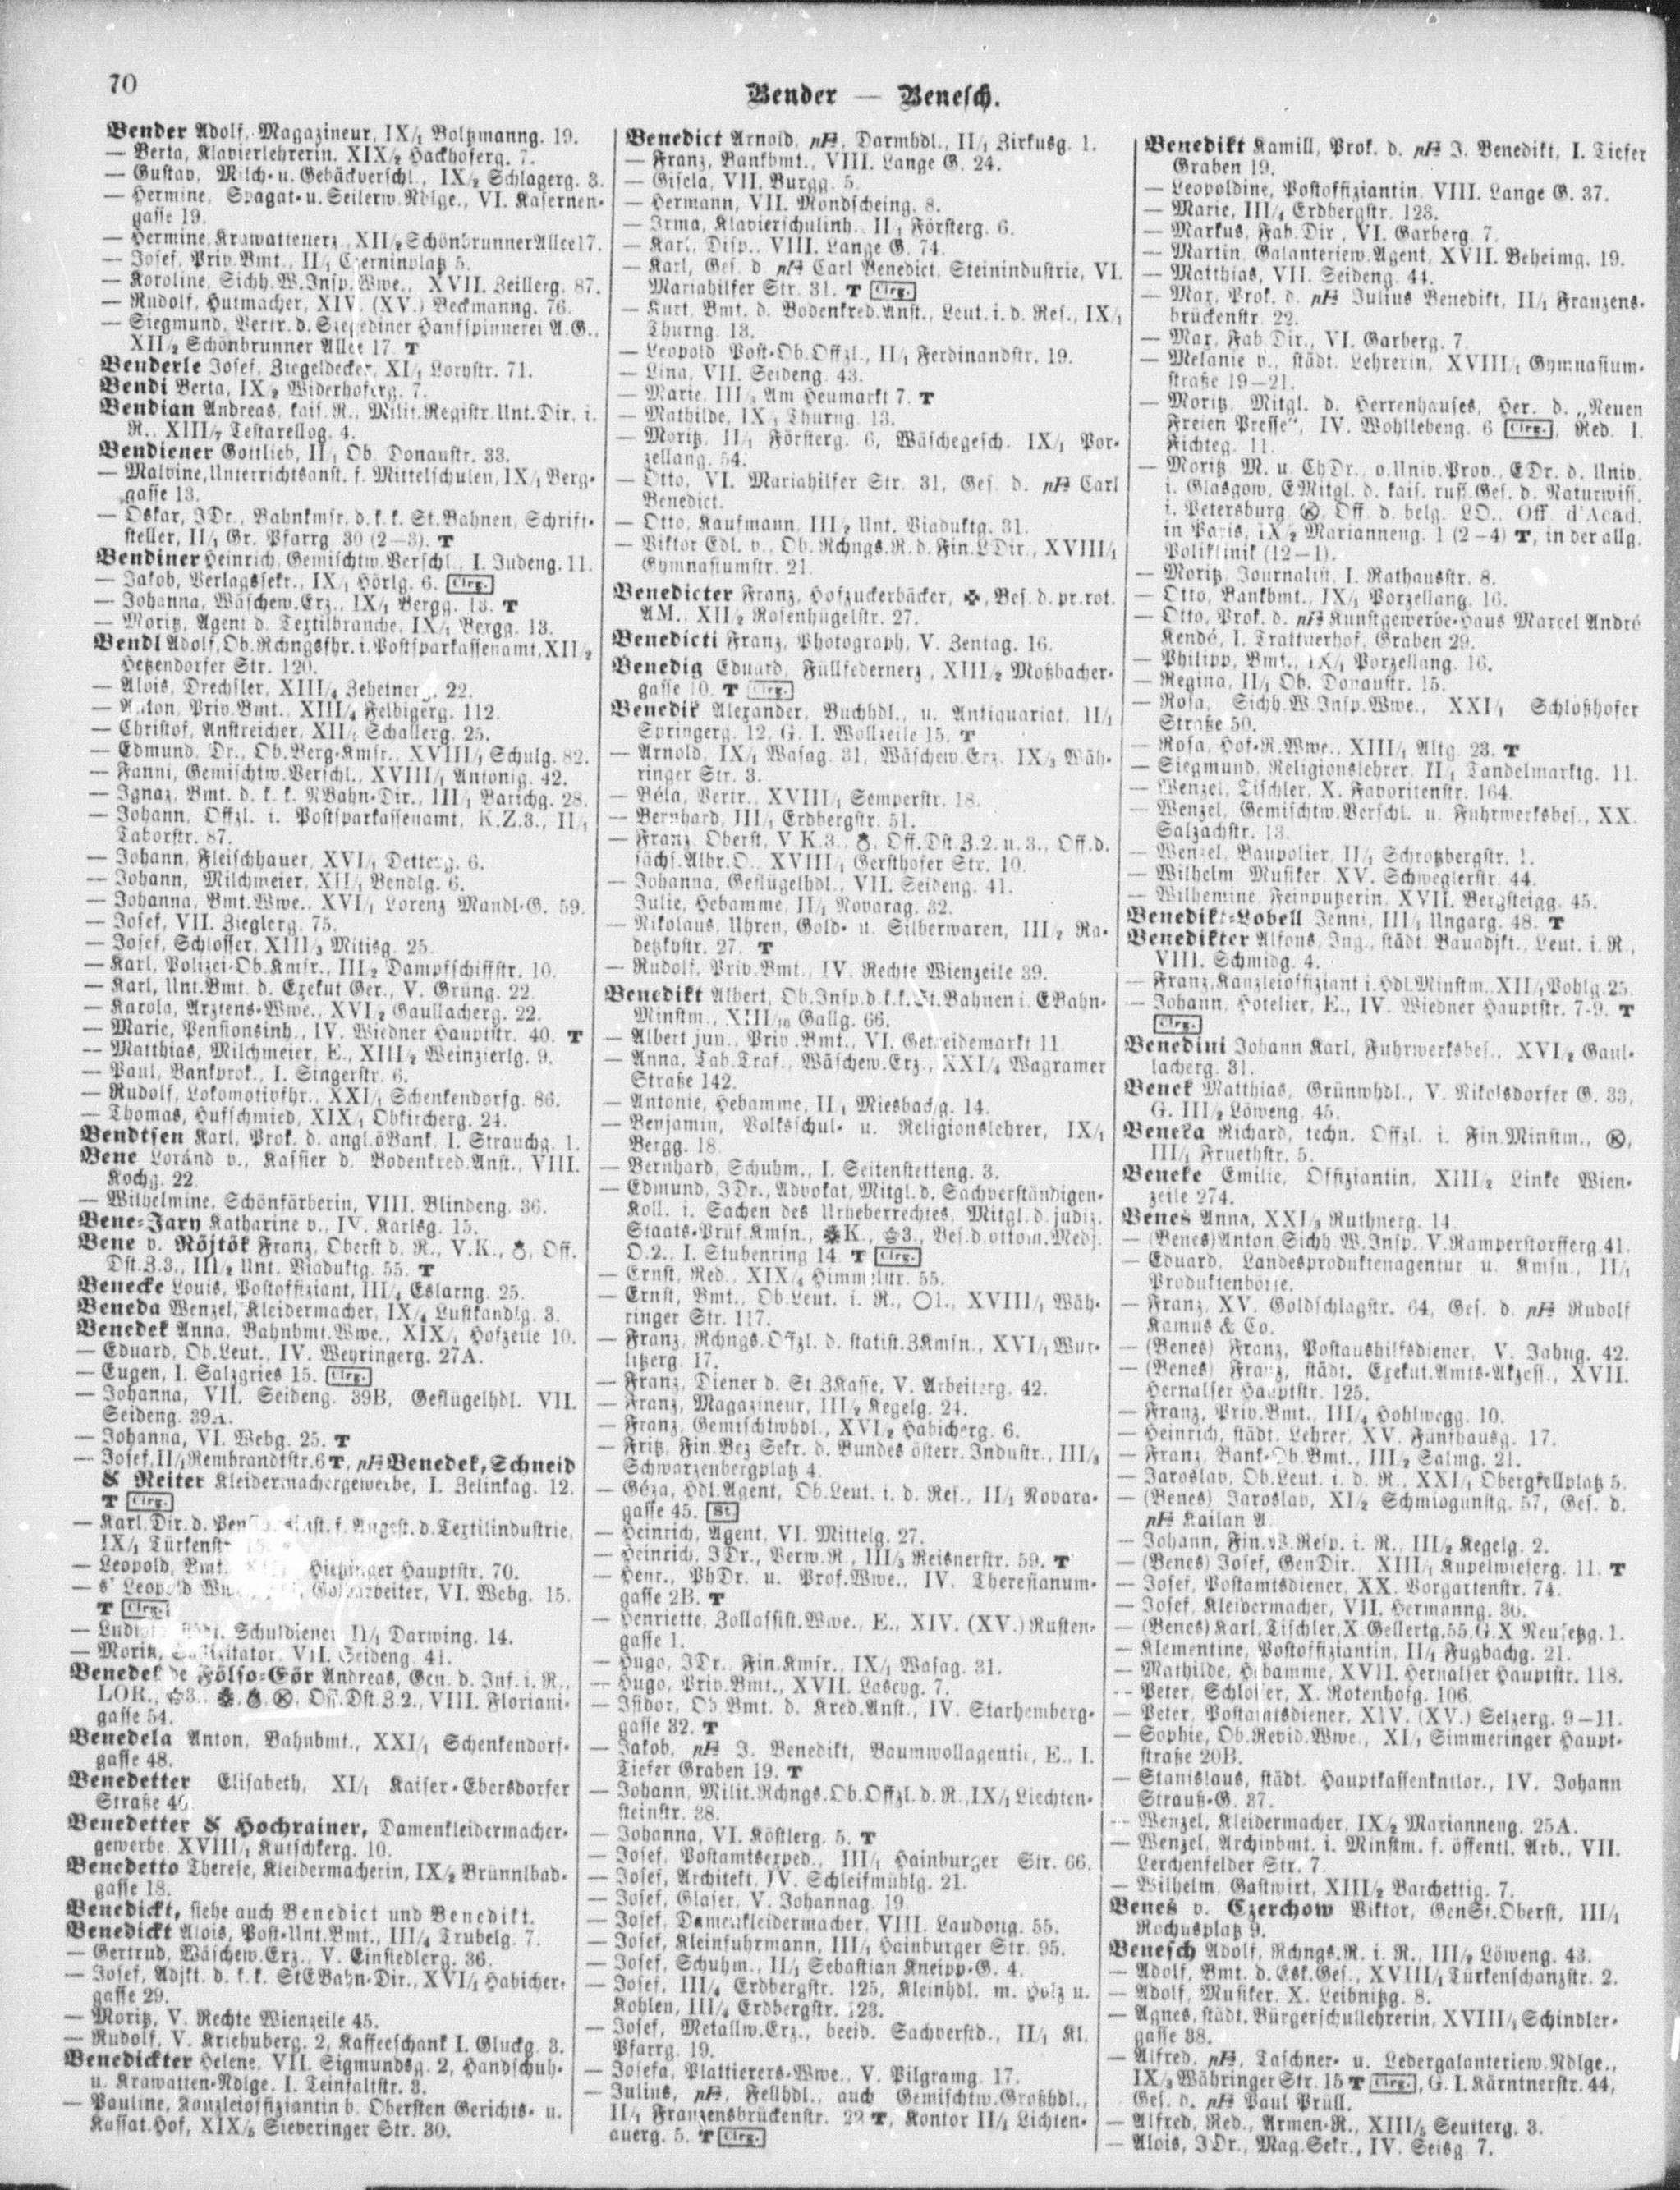 70
Bender — Benesch.
Bender Adolf, Magazineur, IX/1 Boltzmanng. 19.
— Berta, Klavierlehrerin, XIX/2 Hackhoferg. 7.
— Gustav, Milch- u. Gebäckverschl., IX/2 Schlagerg. 3.
— Hermine, Spagat- u. Seilerw.Ndlge., VI. Kasernen-
gasse 19.
— Hermine, Krawattenerz., XII/2 Schönbrunner Allee 17.
— Josef, Priv.Bmt., II/1 Czerninplatz 5.
— Karoline, Sichh.W.Insp.Wwe., XVII. Zeillerg. 87.
— Rudolf, Hutmacher, XIV. (XV.) Beckmanng. 76.
— Siegmund, Vertr. d. Szegediner Hanfspinnerei A.G.,
XII/2 Schönbrunner Allee 17. T
Benderle Josef, Ziegeldecker, XI/1 Lorystr. 71.
Bendi Berta, IX/2 Widerhoferg. 7.
Bendian Andreas, kais. R., Milit.Registr.Unt.Dir. i.
R., XIII/7 Testarellog. 4.
Bendiener Gottlieb, II/1 Ob. Donaustr. 33.
— Malvine, Unterrichtsanst. f. Mittelschulen, IX/1 Berg-
gasse 13.
— Oskar, JDr., Bahnkmsr. d. k. k. St.Bahnen, Schrift-
steller, II/1 Gr. Pfarrg. 30 (2—3). T
Bendiner Heinrich, Gemischtw.Verschl., I. Judeng. 11.
— Jakob, Verlagssekr., IX/1 Hörlg. 6. Clrg.
— Johanna, Wäschew.Erz., IX/1 Bergg. 13. T
— Moritz, Agent d. Textilbranche, IX/1 Bergg. 13.
Bendl Adolf, Ob.Rchngsfhr. i. Postsparkassenamt, XII/2
Hetzendorfer Str. 120.
— Alois, Drechsler, XIII/4 Zehetnerg. 22.
— Anton, Priv.Bmt., XIII/4 Felbigerg. 112.
— Christof, Anstreicher, XII/1 Schallerg. 25.
— Edmund, Dr., Ob.Berg-Kmsr., XVIII/1 Schulg. 82.
— Fanni, Gemischtw.Verschl., XVIII/1 Antonig. 42.
— Ignaz, Bmt. d. k. k. NBahn-Dir., III/1 Barichg. 28.
— Johann, Offzl. i. Postsparkassenamt, K.Z.3., II/1
Taborstr. 87.
— Johann, Fleischhauer, XVI/1 Detterg. 6.
— Johann, Milchmeier, XII/1 Bendlg. 6.
— Johanna, Bmt.Wwe., XVI/1 Lorenz Mandl-G. 59.
— Josef, VII. Zieglerg. 75.
— Josef, Schlosser, XIII/3 Mitisg. 25.
— Karl, Polizei-Ob.Kmsr., III/2 Dampfschiffstr. 10.
— Karl, Unt.Bmt. d. Exekut Ger., V. Grüng. 22.
— Karola, Arztens-Wwe., XVI/2 Gaullacherg. 22.
— Marie, Pensionsinh., IV. Wiedner Hauptstr. 40. T
— Matthias, Milchmeier, E., XIII/2 Weinzierlg. 9.
— Paul, Bankprok., I. Singerstr. 6.
— Rudolf, Lokomotivfhr., XXI/1 Schenkendorfg. 86.
— Thomas, Hufschmied, XIX/1 Obkircherg. 24.
Bendtsen Karl, Prok. d. angl.öBank, I. Strauchg. 1.
Bene Loránd v., Kassier d. Bodenkred.Anst., VIII.
Kochg. 22.
— Wilhelmine, Schönfärberin, VIII. Blindeng. 36.
Bene-Jary Katharine v., IV. Karlsg. 15.
Bene v. Röjtök Franz, Oberst d. R., V.K., Off.
Dst.Z.3., III/2 Unt. Viaduktg. 55. T
Benecke Louis, Postoffiziant, III/4 Eslarng. 25.
Beneda Wenzel, Kleidermacher, IX/4 Lustkandlg. 3.
Benedek Anna, Bahnbmt.Wwe., XIX/1 Hofzeile 10.
— Eduard, Ob.Leut., IV. Weyringerg. 27A.
— Eugen, I. Salzgries 15. Clrg.
— Johanna, VII. Seideng. 39B, Geflügelhdl. VII.
Seideng. 39A.
— Johanna, VI. Webg. 25. T
— Josef, II/1 Rembrandtstr. 6 T, Benedek, Schneid
& Reiter Kleidermachergewerbe, I. Zelinkag. 12.
T Clrg.
— Karl, Dir. d. f. Angest. d. Textilindustrie,
IX/1
— Leopold, Bmt. Hietzinger Hauptstr. 70.
— VI. Webg. 15.
T Clrg.
— Schuldiener II/1 Darwing. 14.
— Moritz, VII. Seideng. 41.
Benedek de Fölső-Eőr Andreas, Gen. d. Inf. i. R.,
LOR., Off.Dst.Z.2., VIII. Floriani-
gasse 54.
Benedela Anton, Bahnbmt., XXI/1 Schenkendorf-
gasse 48.
Benedetter Elisabeth, XI/1 Kaiser-Ebersdorfer
Straße
Benedetter & Hochrainer, Damenkleidermacher-
gewerbe, XVIII/1 Kutschkerg. 10.
Benedetto Therese, Kleidermacherin, IX/2 Brünnlbad-
gasse 18.
Benedickt, siehe auch Benedict und Benedikt.
Benedickt Alois, Post-Unt.Bmt., III/4 Trubelg. 7.
— Gertrud, Wäschew.Erz., V. Einsiedlerg. 36.
— Josef, Adjkt. d. k. k. StEBahn-Dir., XVI/1 Habicher-
gasse 29.
— Moritz, V. Rechte Wienzeile 45.
— Rudolf, V. Kriehuberg. 2, Kaffeeschank I. Gluckg. 3.
Benedickter Helene, VII. Sigmundsg. 2, Handschuh-
u. Krawatten-Ndlge. I. Teinfaltstr. 3.
— Pauline, Kanzleioffiziantin b. Obersten Gerichts- u.
Kassat.Hof, XIX/5 Sieveringer Str. 30.
Benedict Arnold, Darmhdl., II/1 Zirkusg. 1.
— Franz, Bankbmt., VIII. Lange G. 24.
— Gisela, VII. Burgg. 5.
— Hermann, VII. Mondscheing. 8.
— Irma, Klavierschulinh., II/1 Försterg. 6.
— Karl, Disp., VIII. Lange G. 74.
— Karl, Ges. d. Carl Benedict, Steinindustrie, VI.
Mariahilfer Str. 31. T Clrg.
— Kurt, Bmt. d. Bodenkred.Anst., Leut. i. d. Res., IX/1
Thurng. 13.
— Leopold Post-Ob.Offzl., II/1 Ferdinandstr. 19.
— Lina, VII. Seideng. 43.
— Marie, III/3 Am Heumarkt 7. T
— Mathilde, IX/1 Thurng. 13.
— Moritz, II/1 Försterg. 6, Wäschegesch. IX/1 Por-
zellang. 54.
— Otto, VI. Mariahilfer Str. 31, Ges. d. Carl
Benedict.
— Otto, Kaufmann, III/2 Unt. Viaduktg. 31.
— Viktor Edl. v., Ob.Rchngs.R. d. Fin.LDir., XVIII/1
Gymnasiumstr. 21.
Benedicter Franz, Hofzuckerbäcker, Bes. d. pr.rot.
AM., XII/2 Rosenhügelstr. 27.
Benedicti Franz, Photograph, V. Zentag. 16.
Benedig Eduard, Füllfedernerz., XIII/2 Moßbacher-
gasse 10. T Clrg.
Benedik Alexander, Buchhdl., u. Antiquariat, II/1
Springerg. 12, G. I. Wollzeile 15. T
— Arnold, IX/1 Wasag. 31, Wäschew.Erz. IX/3 Wäh-
ringer Str. 3.
— Béla, Vertr., XVIII/1 Semperstr. 18.
— Bernhard, III/1 Erdbergstr. 51.
— Franz, Oberst, V.K.3., Off.Dst.Z.2. u. 3., Off.d.
sächs.Albr.O., XVIII/1 Gersthofer Str. 10.
— Johanna, Geflügelhdl., VII. Seideng. 41.
Julie, Hebamme, II/1 Novarag. 32.
— Nikolaus, Uhren, Gold- u. Silberwaren, III/2 Ra-
detzkystr. 27. T
— Rudolf, Priv.Bmt., IV. Rechte Wienzeile 39.
Benedikt Albert, Ob.Insp.d.k.k.St.Bahnen i. EBahn-
Minstm., XIII/10 Gallg. 66.
— Albert jun., Priv.Bmt., VI. Getreidemarkt 11.
— Anna, Tab.Traf., Wäschew.Erz., XXI/4 Wagramer
Straße 142.
— Antonie, Hebamme, II/1 Miesbachg. 14.
— Benjamin, Volksschul- u. Religionslehrer, IX/1
Bergg. 18.
— Bernhard, Schuhm., I. Seitenstetteng. 3.
— Edmund, JDr., Advokat, Mitgl. d. Sachverständigen-
Koll. i. Sachen des Urheberrechtes, Mitgl. d. judiz.
Staats-Prüf.Kmsn., K., 3., Bes.d.ottom.Medj.
O.2., I. Stubenring 14. T Clrg.
— Ernst, Red., XIX/4 Himmelstr. 55.
— Ernst, Bmt., Ob.Leut. i. R., O1., XVIII/1 Wäh-
ringer Str. 117.
— Franz, Rchngs.Offzl. d. statist.ZKmsn., XVI/1 Wur-
litzerg. 17.
— Franz, Diener d. St.ZKasse, V. Arbeiterg. 42.
— Franz, Magazineur, III/2 Kegelg. 24.
— Franz, Gemischtwhdl., XVI/2 Habicherg. 6.
— Fritz, Fin.Bez Sekr. d. Bundes österr. Industr., III/3
Schwarzenbergplatz 4.
— Géza, Hdl.Agent, Ob.Leut. i. d. Res., II/1 Novara-
gasse 45. St.
— Heinrich, Agent, VI. Mittelg. 27.
— Heinrich, JDr., Verw.R., III/3 Reisnerstr. 59. T
— Henr., PhDr. u. Prof.Wwe., IV. Theresianum-
gasse 2B. T
— Henriette, Zollassist.Wwe., E., XIV. (XV.) Rusten-
gasse 1.
— Hugo, JDr., Fin.Kmsr., IX/1 Wasag. 31.
— Hugo, Priv.Bmt., XVII. Lascyg. 7.
— Isidor, Ob Bmt. d. Kred.Anst., IV. Starhemberg-
gasse 32. T
— Jakob, J. Benedikt, Baumwollagentie, E., I.
Tiefer Graben 19. T
— Johann, Milit.Rchngs.Ob.Offzl. d. R., IX/1 Liechten-
steinstr. 38.
— Johanna, VI. Köstlerg. 5. T
— Josef, Postamtsexped., III/1 Hainburger Str. 66.
— Josef, Architekt, IV. Schleifmühlg. 21.
— Josef, Glaser, V. Johannag. 19.
— Josef, Damenkleidermacher, VIII. Laudong. 55.
— Josef, Kleinfuhrmann, III/1 Hainburger Str. 95.
— Josef, Schuhm., II/1 Sebastian Kneipp-G. 4.
— Josef, III/4 Erdbergstr. 125, Kleinhdl. m. Holz u.
Kohlen, III/4 Erdbergstr. 123.
— Josef, Metallw.Erz., beeid. Sachverstd., II/1 Kl.
Pfarrg. 19.
— Josefa, Plattierers-Wwe., V. Pilgramg. 17.
— Julius, Fellhdl., auch Gemischtw.Großhdl.,
II/1 Franzensbrückenstr. 22 T, Kontor II/1 Lichten-
auerg. 5. T Clrg.
Benedikt Kamill, Prok. d. J. Benedikt, I. Tiefer
Graben 19.
— Leopoldine, Postoffiziantin, VIII. Lange G. 37.
— Marie, III/4 Erdbergstr. 123.
— Markus, Fab.Dir., VI. Garberg. 7.
— Martin, Galanteriew.Agent, XVII. Beheimg. 19.
— Matthias, VII. Seideng. 44.
— Max, Prok. d. Julius Benedikt, II/1 Franzens-
brückenstr. 22.
— Max, Fab.Dir., VI. Garberg. 7.
— Melanie v., städt. Lehrerin, XVIII/1 Gymnasium-
straße 19—21.
— Moritz, Mitgl. d. Herrenhauses, Her. d. „Neuen
Freien Presse", IV. Wohllebeng. 6 Clrg., Red. I.
Fichteg. 11.
— Moritz M. u. ChDr., o.Univ.Prov., EDr. d. Univ.
i. Glasgow, EMitgl. d. kais. russ.Ges. d. Naturwiss.
i. Petersburg, K, Off. d. belg. LO., Off d'Acad.
in Paris, IX/2 Marianneng. 1 (2—4) T, in der allg.
Poliklinik (12—1).
— Moritz, Journalist, I. Rathausstr. 8.
— Otto, Bankbmt., IX/1 Porzellang. 16.
— Otto, Prok. d. Kunstgewerbe-Haus Marcel André
Kendé, I. Trattnerhof, Graben 29.
— Philipp, Bmt., IX/1 Porzellang. 16.
— Regina, II/1 Ob. Donaustr. 15.
— Rosa, Sichh.W.Insp.Wwe., XXI/1 Schloßhofer
Straße 50.
— Rosa, Hof-R.Wwe., XIII/1 Altg. 23. T
— Siegmund, Religionslehrer, II/1 Tandelmarktg. 11.
— Wenzel, Tischler, X. Favoritenstr. 164.
— Wenzel, Gemischtw.Verschl. u. Fuhrwerksbes., XX.
Salzachstr. 13.
— Wenzel, Baupolier, II/1 Schrotzbergstr. 1.
— Wilhelm Musiker, XV. Schweglerstr. 44.
— Wilhemine, Feinputzerin, XVII. Bergsteigg. 45.
Benedikt-Lobell Jenni, III/1 Ungarg. 48. T
Benedikter Alfons, Ing., städt. Bauadjkt., Leut. i. R.,
VIII. Schmidg. 4.
— Franz, Kanzleioffiziant i. Hdl.Minstm., XII/1 Pohlg. 25.
— Johann, Hotelier, E., IV. Wiedner Hauptstr. 7-9. T
Clrg.
Benedini Johann Karl, Fuhrwerksbes., XVI/2 Gaul-
lacherg. 31.
Benek Matthias, Grünwhdl., V. Nikolsdorfer G. 33,
G. III/2 Löweng. 45.
Beneka Richard, techn. Offzl. i. Fin.Minstm., K,
III/1 Fruethstr. 5.
Beneke Emilie, Offiziantin, XIII/2 Linke Wien-
zeile 274.
Benes Anna, XXI/3 Ruthnerg. 14.
— (Benes) Anton, Sichh.W.Insp., V. Ramperstorfferg. 41.
— Eduard, Landesproduktenagentur u. Kmsn., II/1
Produktenbörse.
— Franz, XV. Goldschlagstr. 64, Ges. d. Rudolf
Kamus & Co.
— (Benes) Franz, Postaushilfsdiener, V. Jahng. 42.
— (Benes) Franz, städt. Exekut.Amts-Akzess., XVII.
Hernalser Hauptstr. 125.
— Franz, Priv.Bmt., III/4 Hohlwegg. 10.
— Heinrich, städt. Lehrer, XV. Fünfhausg. 17.
— Franz, Bank-Ob.Bmt., III/2 Salmg. 21.
— Jaroslav, Ob.Leut. i. d. R., XXI/1 Obergfellplatz 5.
— (Benes) Jaroslav, XI/2 Schmidgunstg. 57, Ges. d.
Kailan A.
— Johann, Fin.W.Resp. i. R., III/2 Kegelg. 2.
— (Benes) Josef, GenDir., XIII/1 Kupelwieserg. 11. T
— Josef, Postamtsdiener, XX. Vorgartenstr. 74.
— Josef, Kleidermacher, VII. Hermanng. 30.
— (Benes) Karl, Tischler, X. Gellertg. 55, G. X. Neusetzg. 1.
— Klementine, Postoffiziantin, II/1 Fugbachg. 21.
— Mathilde, Hebamme, XVII. Hernalser Hauptstr. 118.
— Peter, Schlosser, X. Rotenhofg. 106.
— Peter, Postamtsdiener, XIV. (XV.) Selzerg. 9—11.
— Sophie, Ob.Revid.Wwe., XI/1 Simmeringer Haupt-
straße 20B.
— Stanislaus, städt. Hauptkassenkntlor., IV. Johann
Strauß-G. 37.
— Wenzel, Kleidermacher, IX/2 Marianneng. 25A.
— Wenzel, Archivbmt. i. Minstm. f. öffentl. Arb., VII.
Lerchenfelder Str. 7.
— Wilhelm, Gastwirt, XIII/2 Barchettig. 7.
Beneš v. Czerchow Viktor, GenSt.Oberst, III/1
Rochusplatz 9.
Benesch Adolf, Rchngs.R. i. R., III/2 Löweng. 43.
— Adolf, Bmt. d. Esk.Ges., XVIII/1 Türkenschanzstr. 2.
— Adolf, Musiker, X. Leibnitzg. 8.
— Agnes, städt. Bürgerschullehrerin, XVIII/1 Schindler-
gasse 38.
— Alfred, Taschner- u. Ledergalanteriew.Ndlge.,
IX/3 Währinger Str. 15 T Clrg., G. I. Kärntnerstr. 44,
Ges. d. Paul Prüll.
— Alfred, Red., Armen-R., XIII/5 Seutterg. 3.
— Alois, JDr., Mag.Sekr., IV. Seisg. 7.